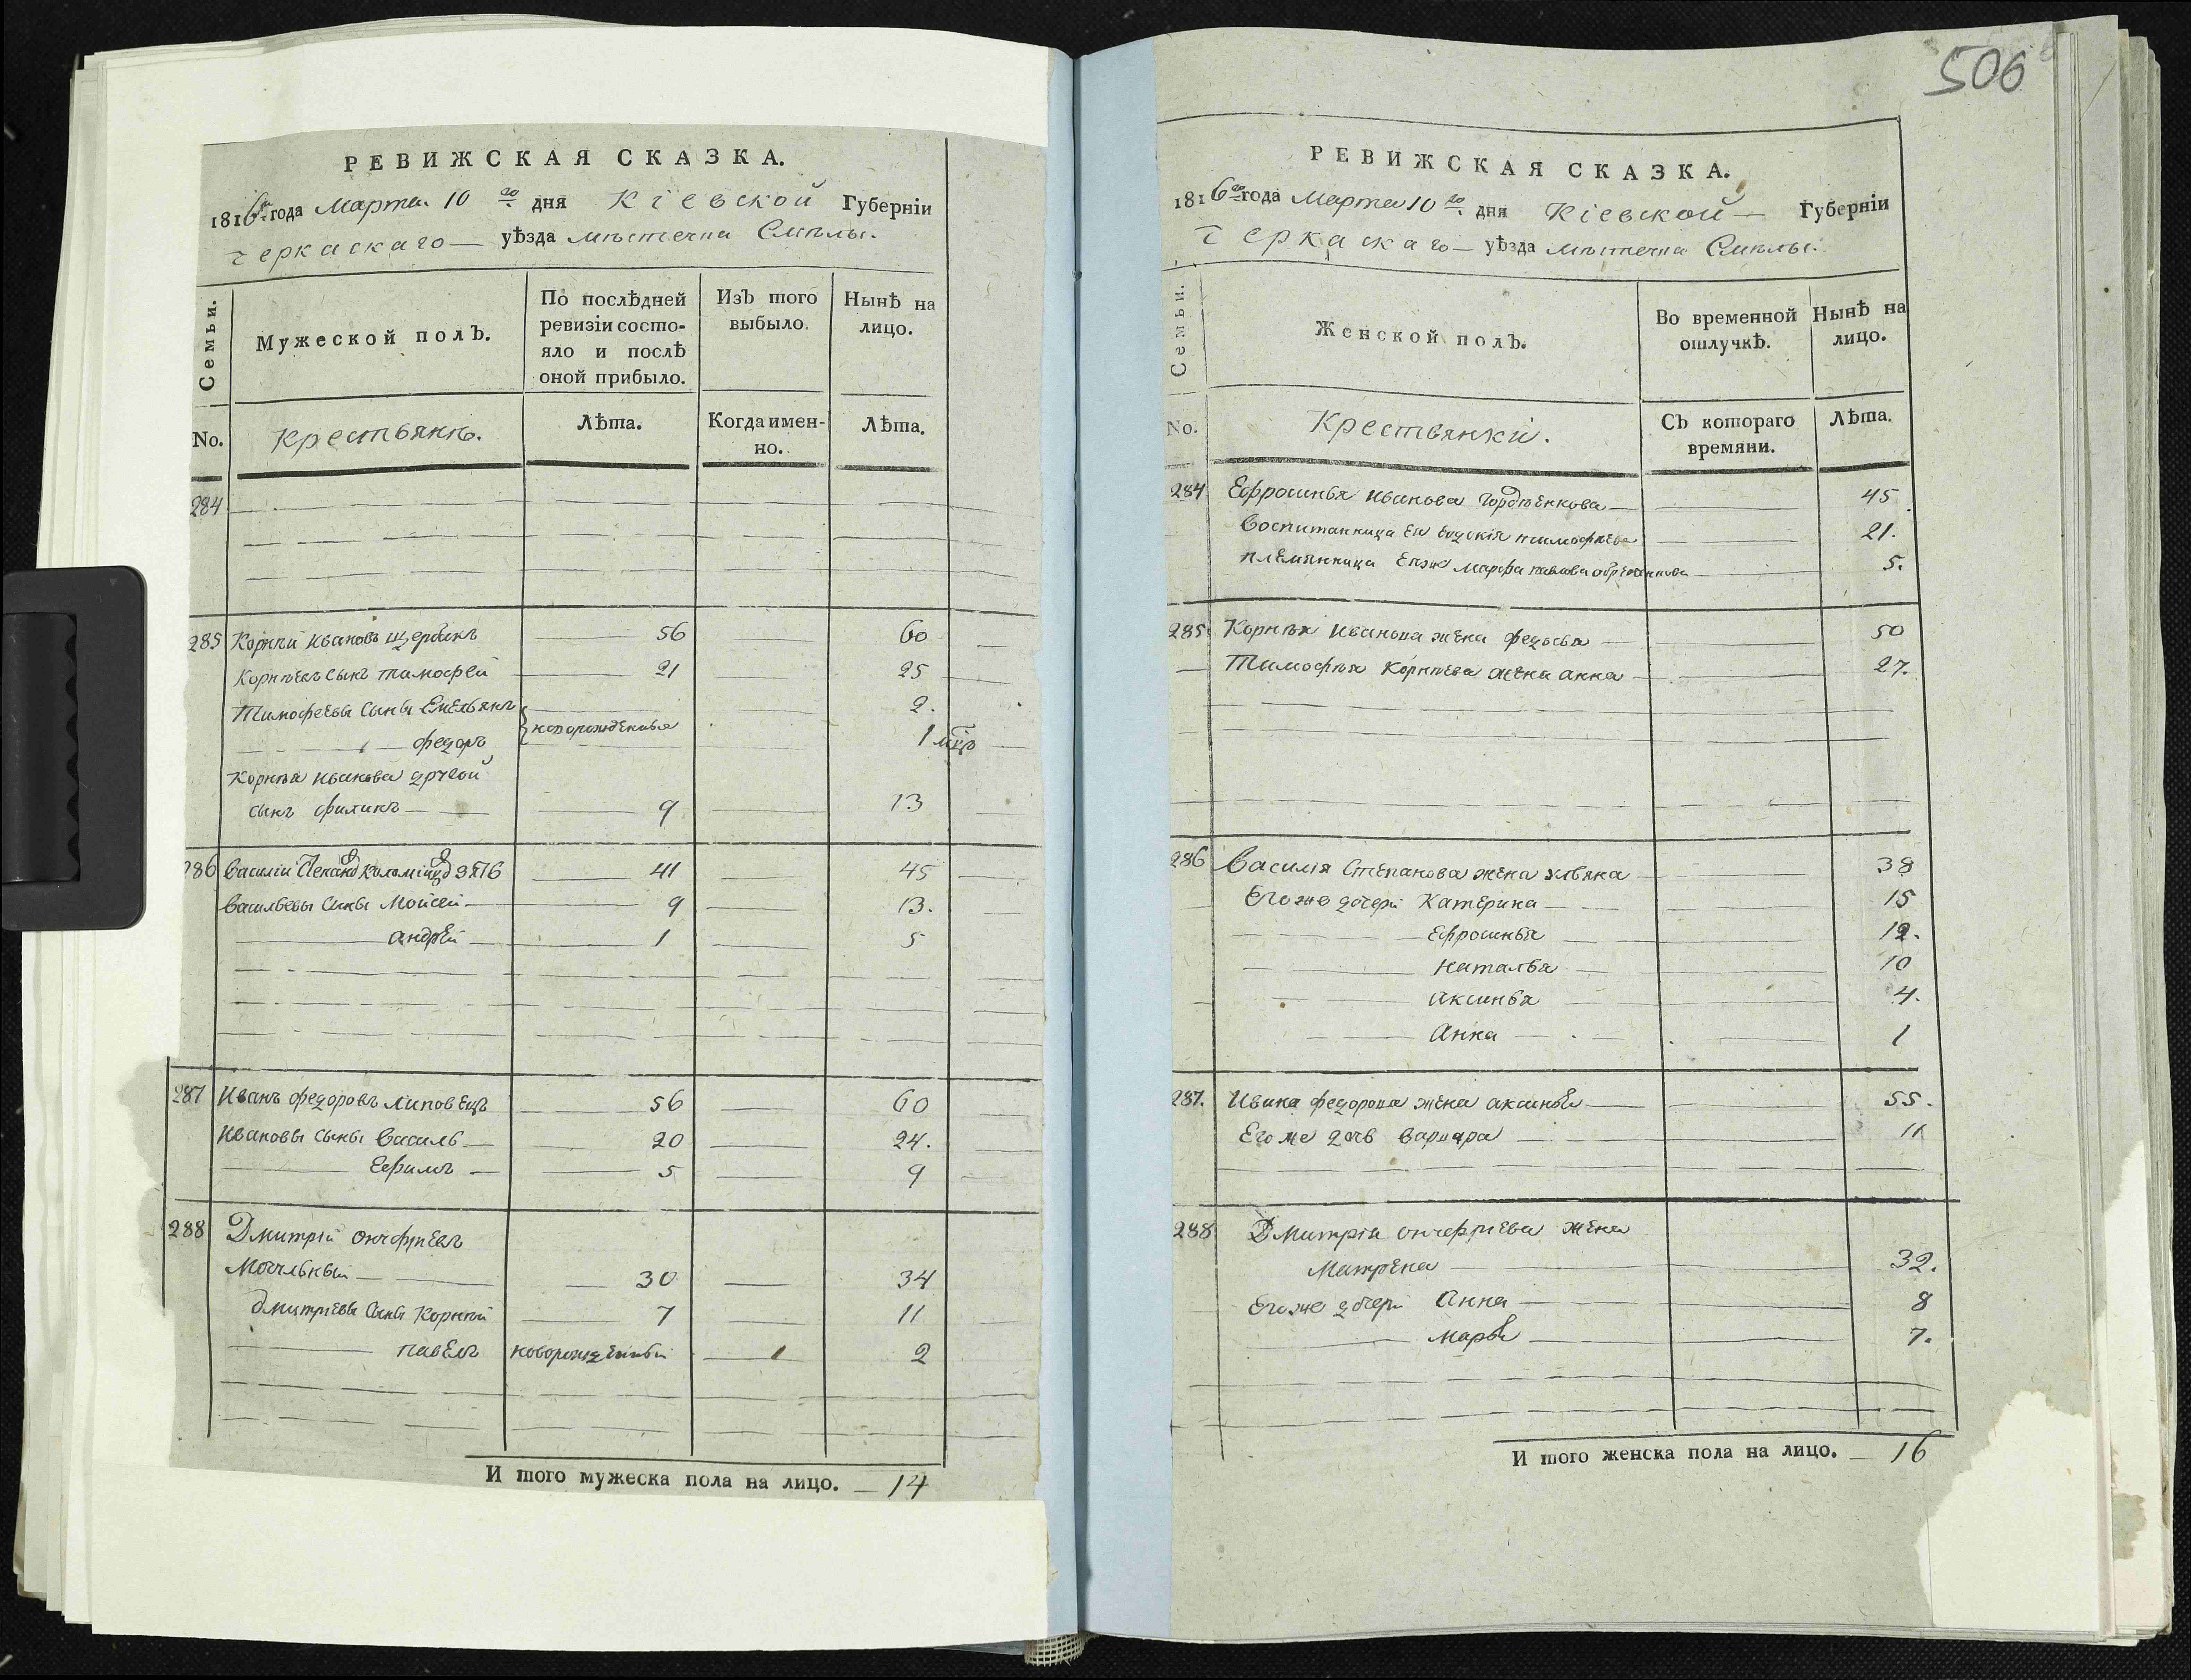 506
РЕВИЖСКАЯ СКАЗКА.
1816го года Марта 10го дня Кіевской Губерніи
Черкаскаго уѣзда мѣстечка Смѣлы.
Семьи.
Мужеской полЪ.
По послѣдней ревизіи состо-
яло и послѣ
оной прибыло.
ИзЪ того
выбыло.
Нынѣ на
лицо.
No.
Крестьянъ.
Лѣта.
Когда имен-
но.
Лѣта.
284
285 Корнѣй Ивановъ щербакъ 56 60
Корнѣевъ сынъ тимофей 21 25
Тимофеевы сыны Емельянъ 2.
федоръ новорожденные 1 мць
Корнѣя Иванова другой
сынъ филипъ 9 13
286 Василіи Степановъ Коломіецъ 41 45
Васильевы сыны Мойсей 9 13.
андрей 1 5
287 Иванъ федоровъ липовецъ 56 60
Ивановы сыны Василь 20 24.
Ефимъ 5 9
288 Дмитрій онуфріевъ
30 34
дмитріевы сыны Корнѣй 7 11
павелъ новорожденный 2
И того мужеска пола на лицо. 14
РЕВИЖСКАЯ СКАЗКА.
1816го года Марта 10го дня Кіевской Губерніи
Черкаскаго уѣзда мѣстечка Смѣлы.
Семьи.
Женской полЪ.
Во временной
отлучкѣ.
Нынѣ на
лицо.
No.
Крестьянки.
СЪ котораго
времяни.
Лѣта.
284 Ефросинья Иванова гордѣенкова 45
Воспитанница Ея евдокія тимофѣева 21.
племянница Еяже марфа павлова 5.
285 Корнѣя Иванова жена федосья 50
Тимофѣя Корнѣева жена анна 27.
286 Василія Степанова жена ульяна 38
Его же дочери Катерина 15
Ефросинья 12.
наталья 10
аксинья 4.
анна 1
287. Ивана федорова жена аксинья 55.
Его же дочь варвара 11
288 Дмитрія онуфріева жена
Матрена 32.
Его же дочери Анна 8
марья 7.
И того женска пола на лицо. 16